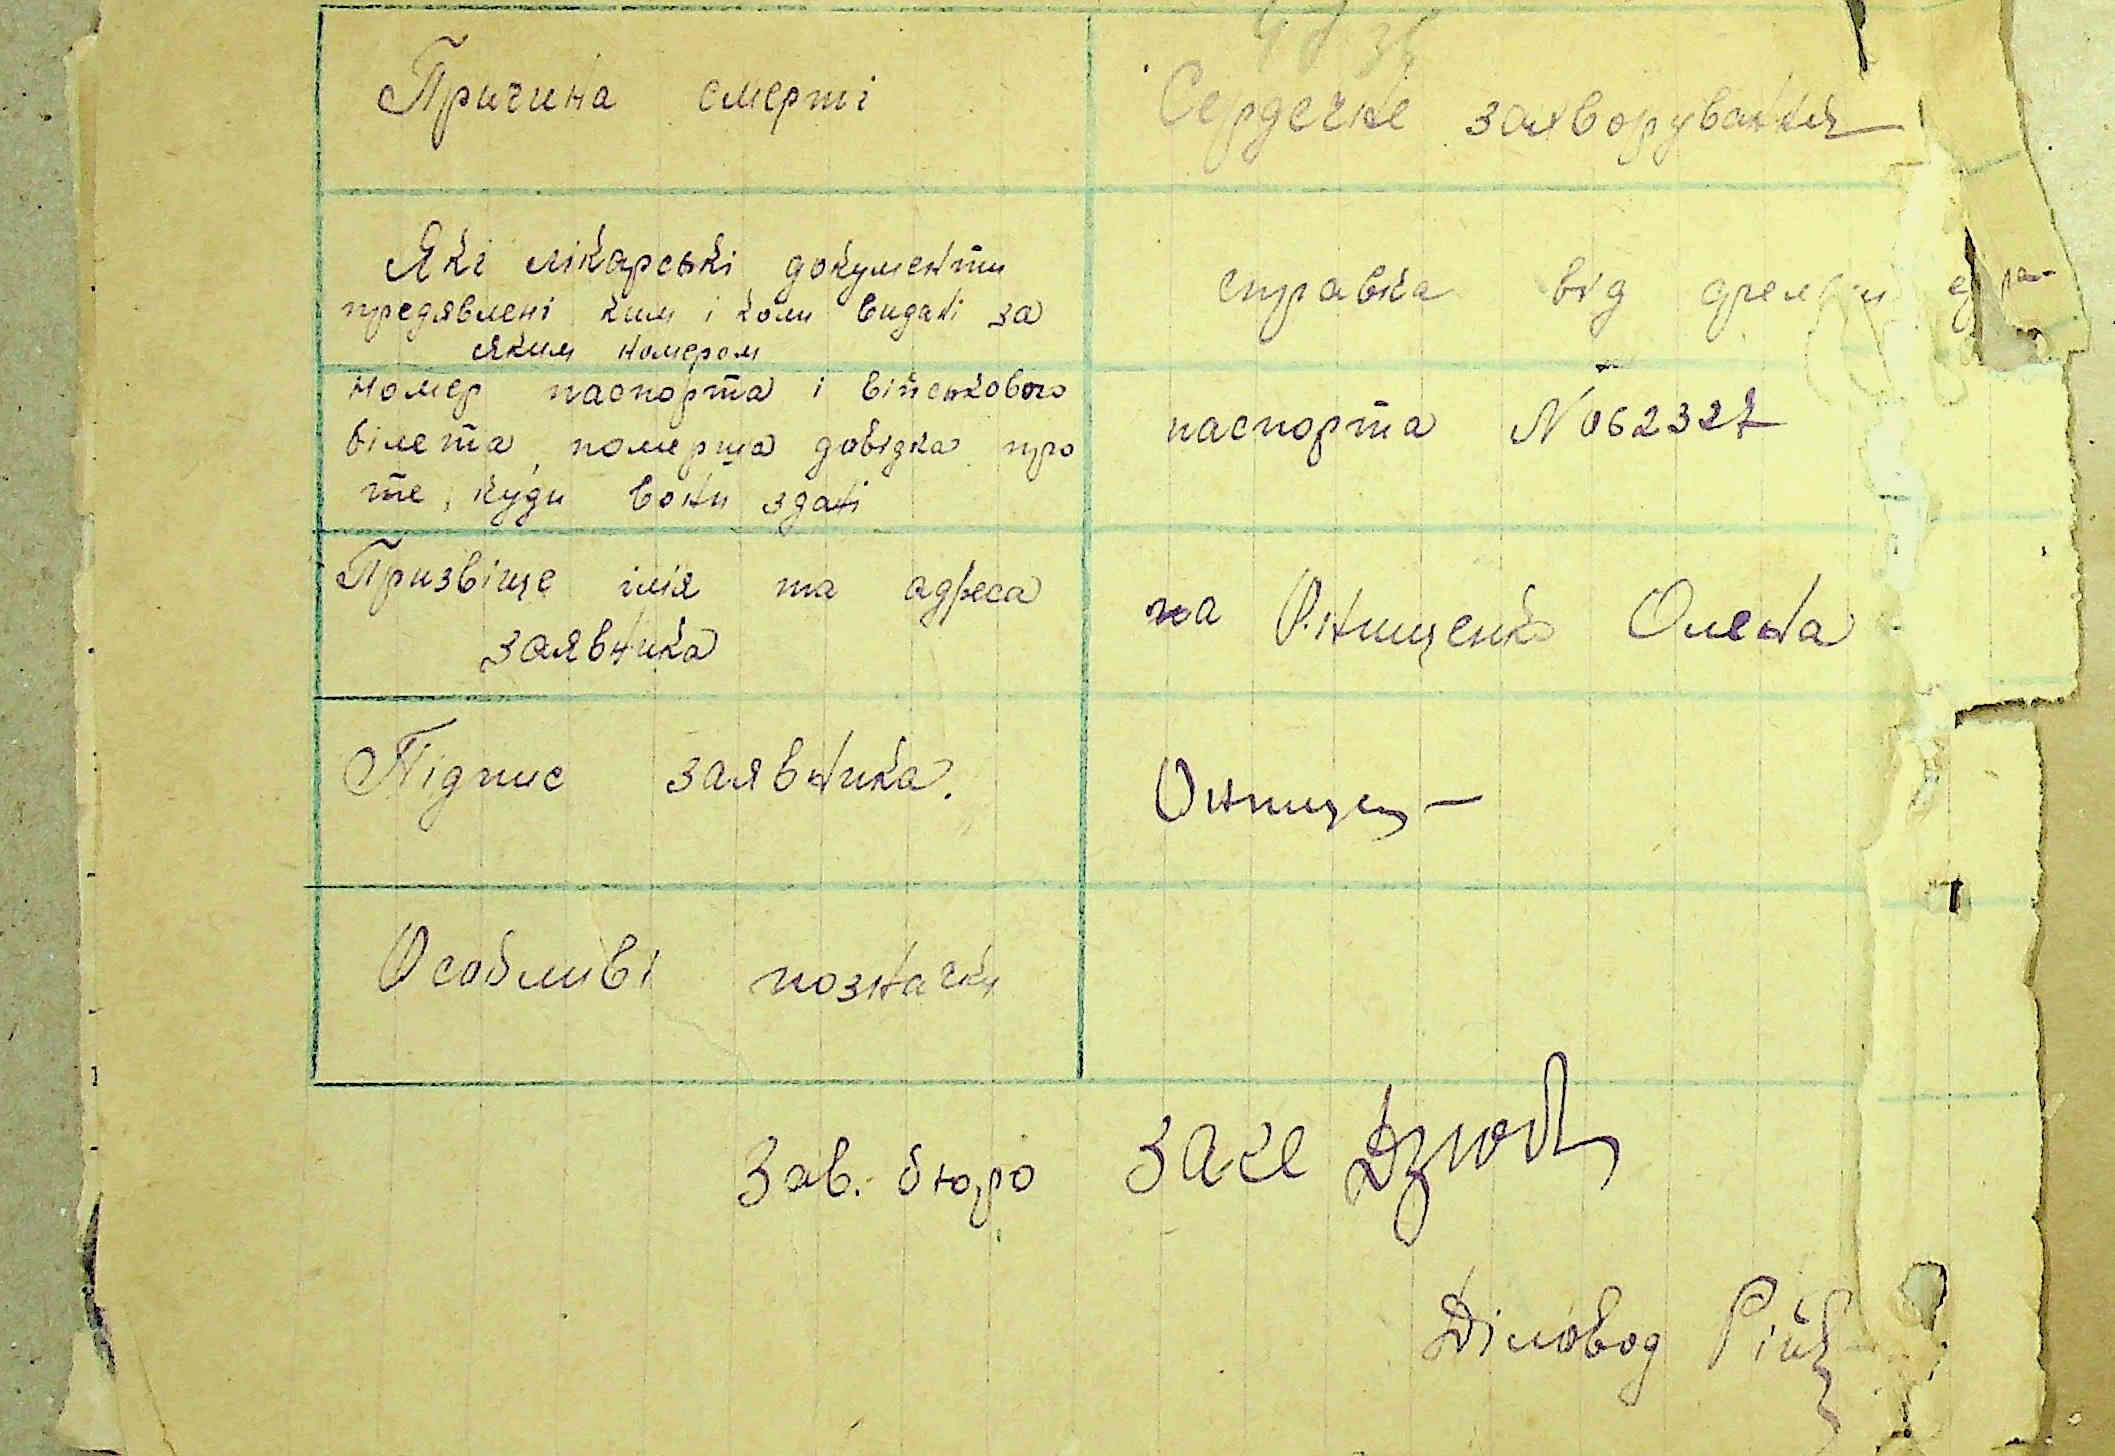 Причина смерті
Сердечне захворування
Які лікарські документи
предявлені ким і коли видані за
яким номером
справка від
номер паспорта і військового
білета, померша довідка про
те, куди вони здані
паспорта № 062327
Призвіще імія та адреса
заявника
на Онищенко Олена
Підпис заявника.
Особливі позначки
Зав. бюро ЗАГС
Діловод